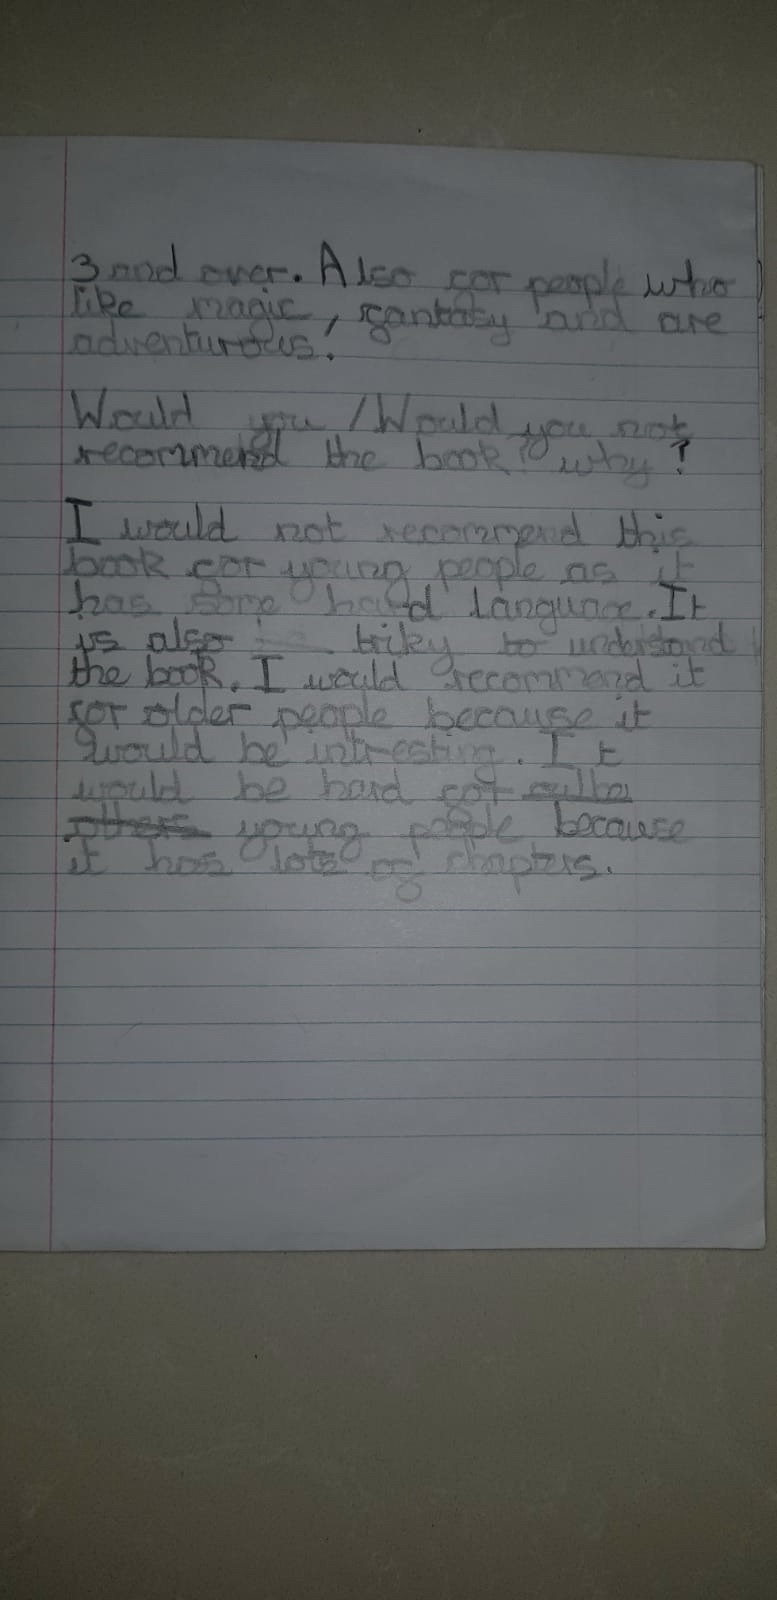 3 and over. Also for people who
like magic, fantasy and are
adventurous.
Would you / Would you not
recommend the book? why?
I would not recommend this
book for young people as it
has some hard language. It
is also triky to understand
the book. I would recommend it
for older people because it
would be intresting. It
would be hard for
others young people because
it has lots of chapters.